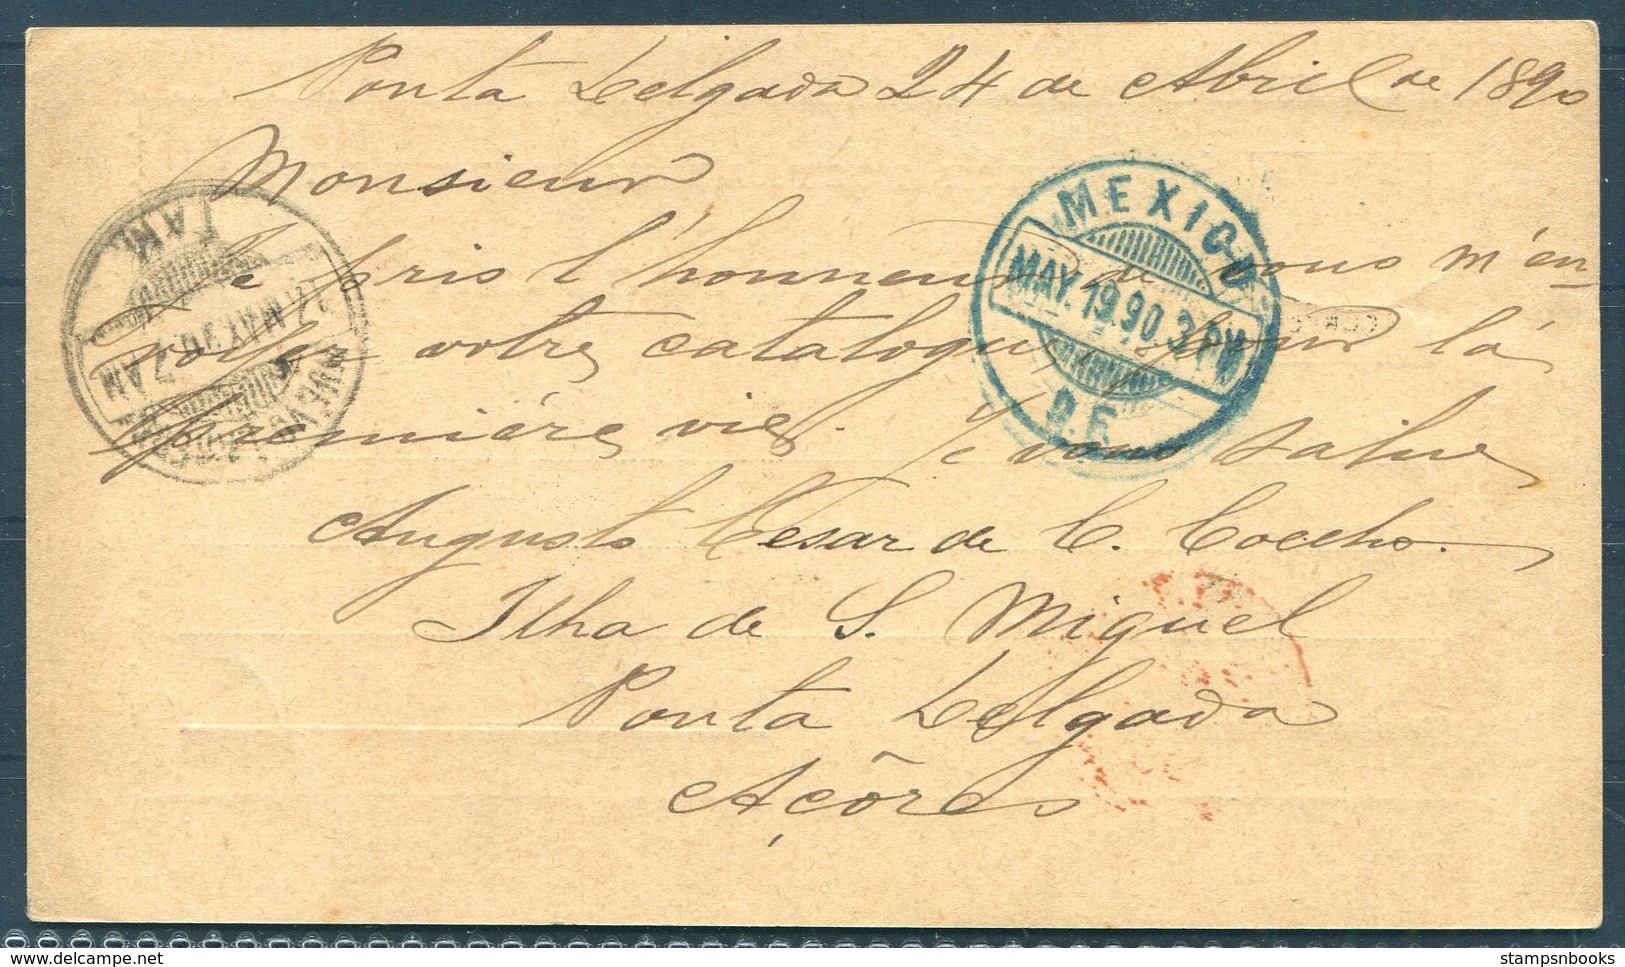 Ponta Delgada 24 de Abril de 1890
Monsieur
Je pris l'honneur de vous m'en-
voyer votre catalogue pour la
première vie. Je vous salue
Augusto Cesar de C. Coelho.
Ilha de S. Miguel
Ponta Delgada
Açôres
MEXICO
MAY. 19. 90. 3 PM
D. F.
17 MAY 90 7 AM
stampsnbooks